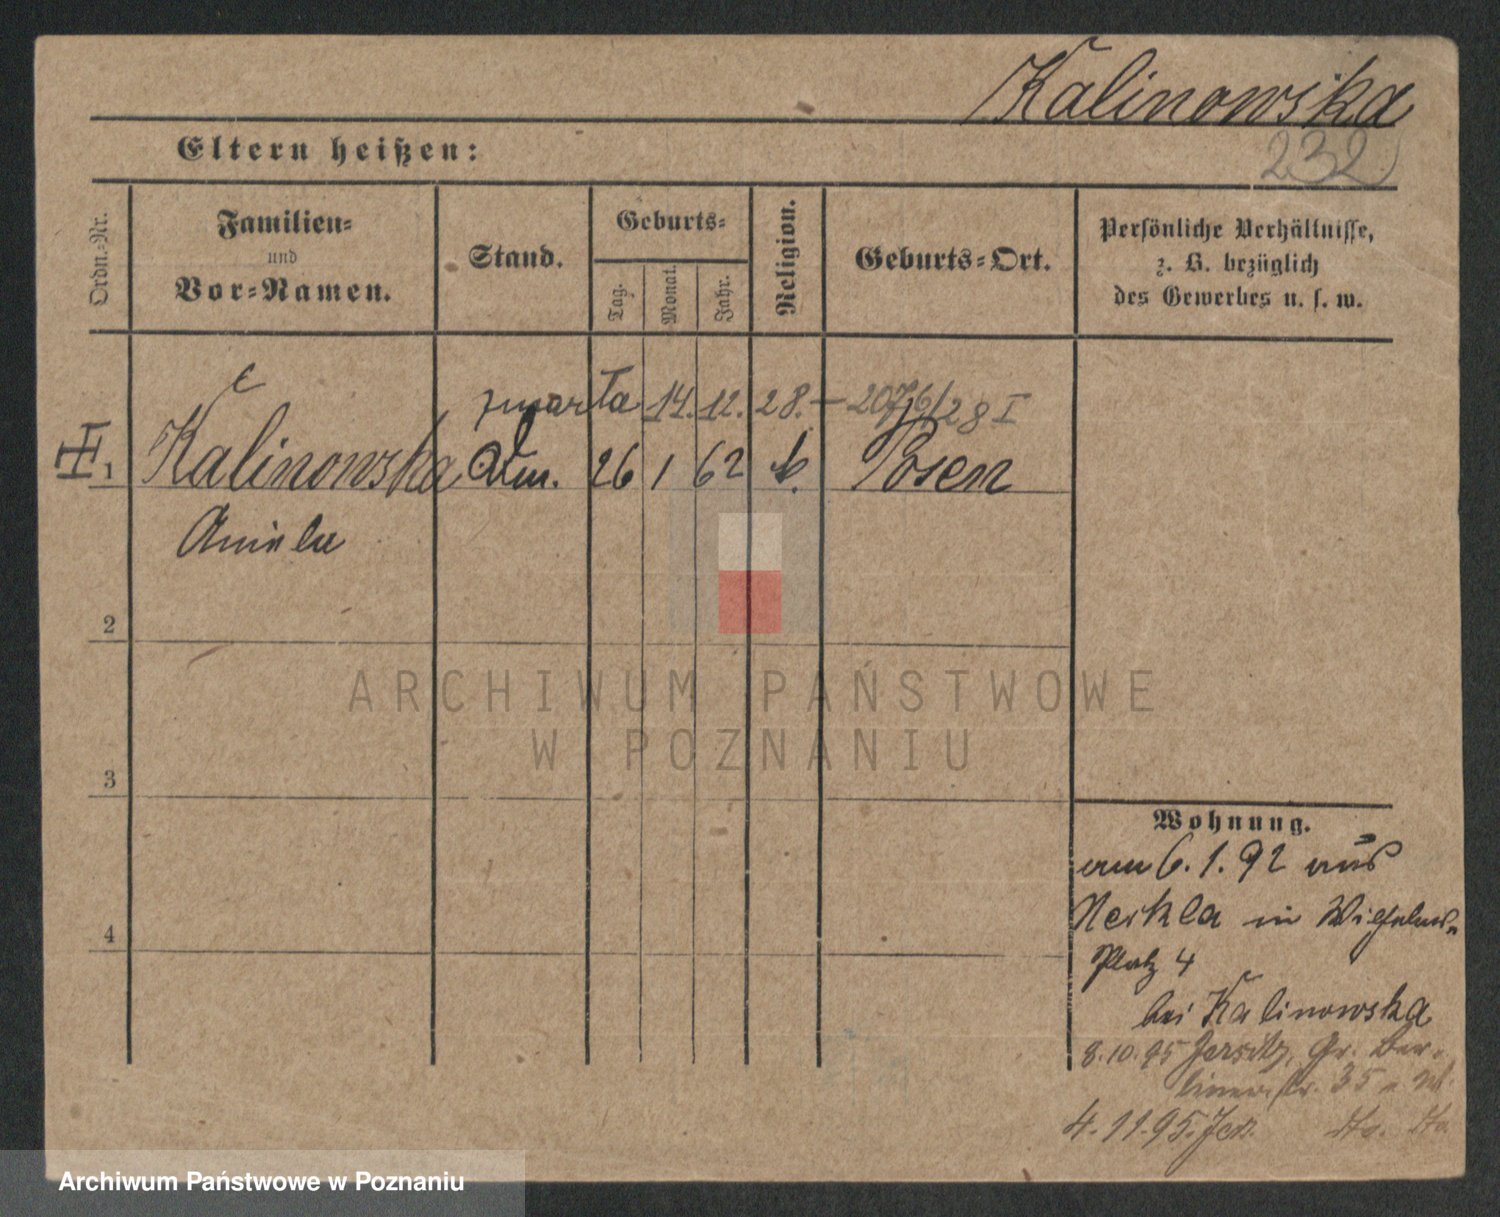 Kalinowska
232
Eltern heißen:
Ordn.-Nr.
Familien-
und
Vor-Namen.
Stand.
Geburts-
Tag.
Monat.
Jahr.
Religion.
Geburts-Ort.
Persönliche Verhältnisse,
z. B. bezüglich
des Gewerbes u. s. w.
zmarła 14. 12. 28. – 2076/28 I
1 Kalinowska 26 1 62 k. Posen
Aniela
2
3
4
ARCHIWUM PAŃSTWOWE
W POZNANIU
Wohnung.
am 6. 1. 92 aus
Nekla in Wilhelms-
Platz 4
bei Kalinowska
8. 10. 95 Jersitz, Gr. Ber-
linerstr. 35
4. 11. 95. Jer. dto. dto.
Archiwum Państwowe w Poznaniu